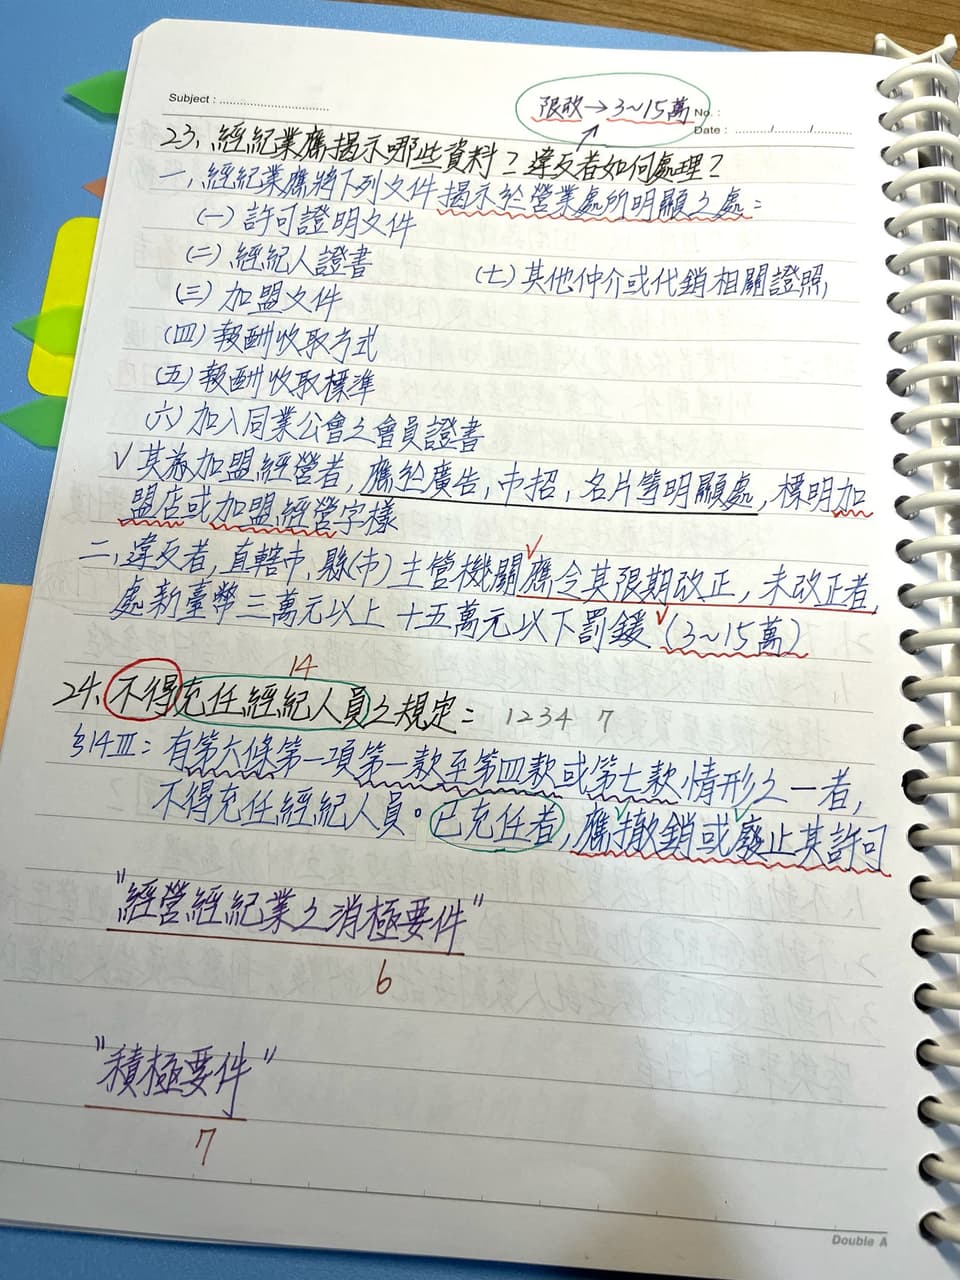 Subject :
限改→3~15萬
No. :
Date : / /
23、經紀業應揭示哪些資料？違反者如何處理？
一、經紀業應將下列文件揭示於營業處所明顯之處：
(一)許可證明文件
(二)經紀人證書
(七)其他仲介或代銷相關證照
(三)加盟文件
(四)報酬收取方式
(五)報酬收取標準
(六)加入同業公會之會員證書
√其為加盟經營者，應於廣告，市招，名片等明顯處，標明加
盟店或加盟經營字樣
二、違反者，直轄市，縣(市)主管機關應令其限期改正，未改正者，
處新臺幣三萬元以上十五萬元以下罰鍰(3~15萬)
14
24、不得充任經紀人員之規定： 1234 7
§14Ⅲ：有第六條第一項第一款至第四款或第七款情形之一者，
不得充任經紀人員。已充任者，應撤銷或廢止其許可
"經營經紀業之消極要件"
6
"積極要件"
7
Double A